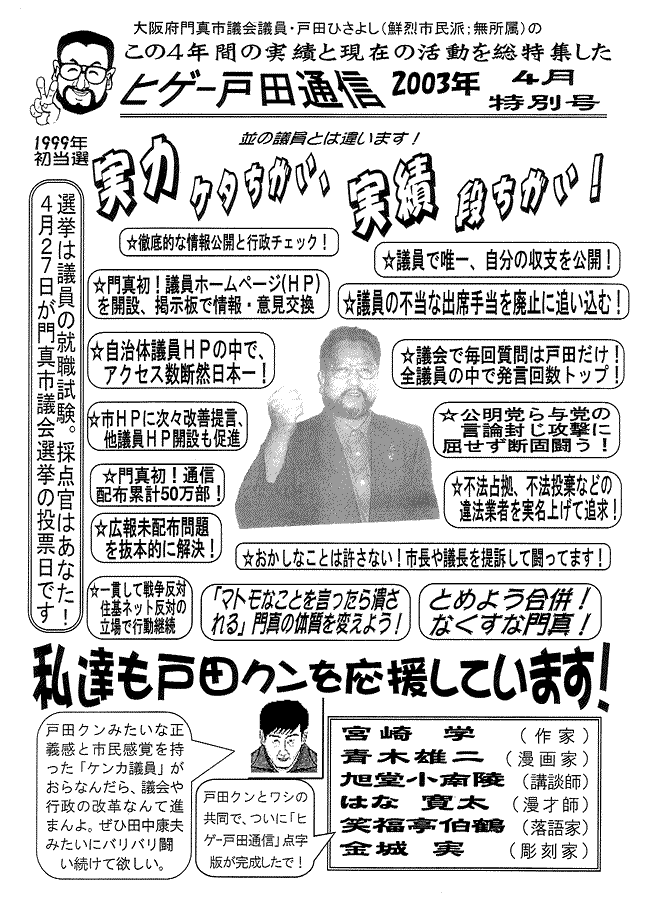 大阪府門真市議会議員・戸田ひさよし(鮮烈市民派;無所属)の
この4年間の実績と現在の活動を総特集した
ヒゲー戸田通信 2003年 4月
特別号
1999年
初当選
並の議員とは違います!
実力ケタちがい、実績段ちがい!
選挙は議員の就職試験。採点官はあなた!
4月27日が門真市議会選挙の投票日です
☆徹底的な情報公開と行政チェック!
☆議員で唯一、自分の収支を公開!
☆門真初!議員ホームページ(HP)
を開設、掲示板で情報・意見交換
☆議員の不当な出席手当を廃止に追い込む!
☆自治体議員HPの中で、
アクセス数断然日本一!
☆議会で毎回質問は戸田だけ!
全議員の中で発言回数トップ!
☆市HPに次々改善提言、
他議員HP開設も促進
☆公明党ら与党の
言論封じ攻撃に
屈せず断固闘う!
☆門真初!通信
配布累計50万部!
☆不法占拠、不法投棄などの
違法業者を実名上げて追求!
☆広報未配布問題
を抜本的に解決!
☆おかしなことは許さない!市長や議長を提訴して闘ってます!
☆一貫して戦争反対
住基ネット反対の
立場で行動継続
「マトモなことを言ったら潰さ
れる」門真の体質を変えよう!
とめよう合併!
なくすな門真!
私達も戸田クンを応援しています!
戸田クンみたいな正
義感と市民感覚を持
った「ケンカ議員」が
おらなんだら、議会や
行政の改革なんて進
まんよ。ぜひ田中康夫
みたいにバリバリ闘
い続けて欲しい。
戸田クンとワシの
共同で、ついに「ヒ
ゲー戸田通信」点字
版が完成したで!
宮崎 学 (作家)
青木雄二 (漫画家)
旭堂小南陵 (講談師)
はな 寛太 (漫才師)
笑福亭伯鶴 (落語家)
金城 実 (彫刻家)